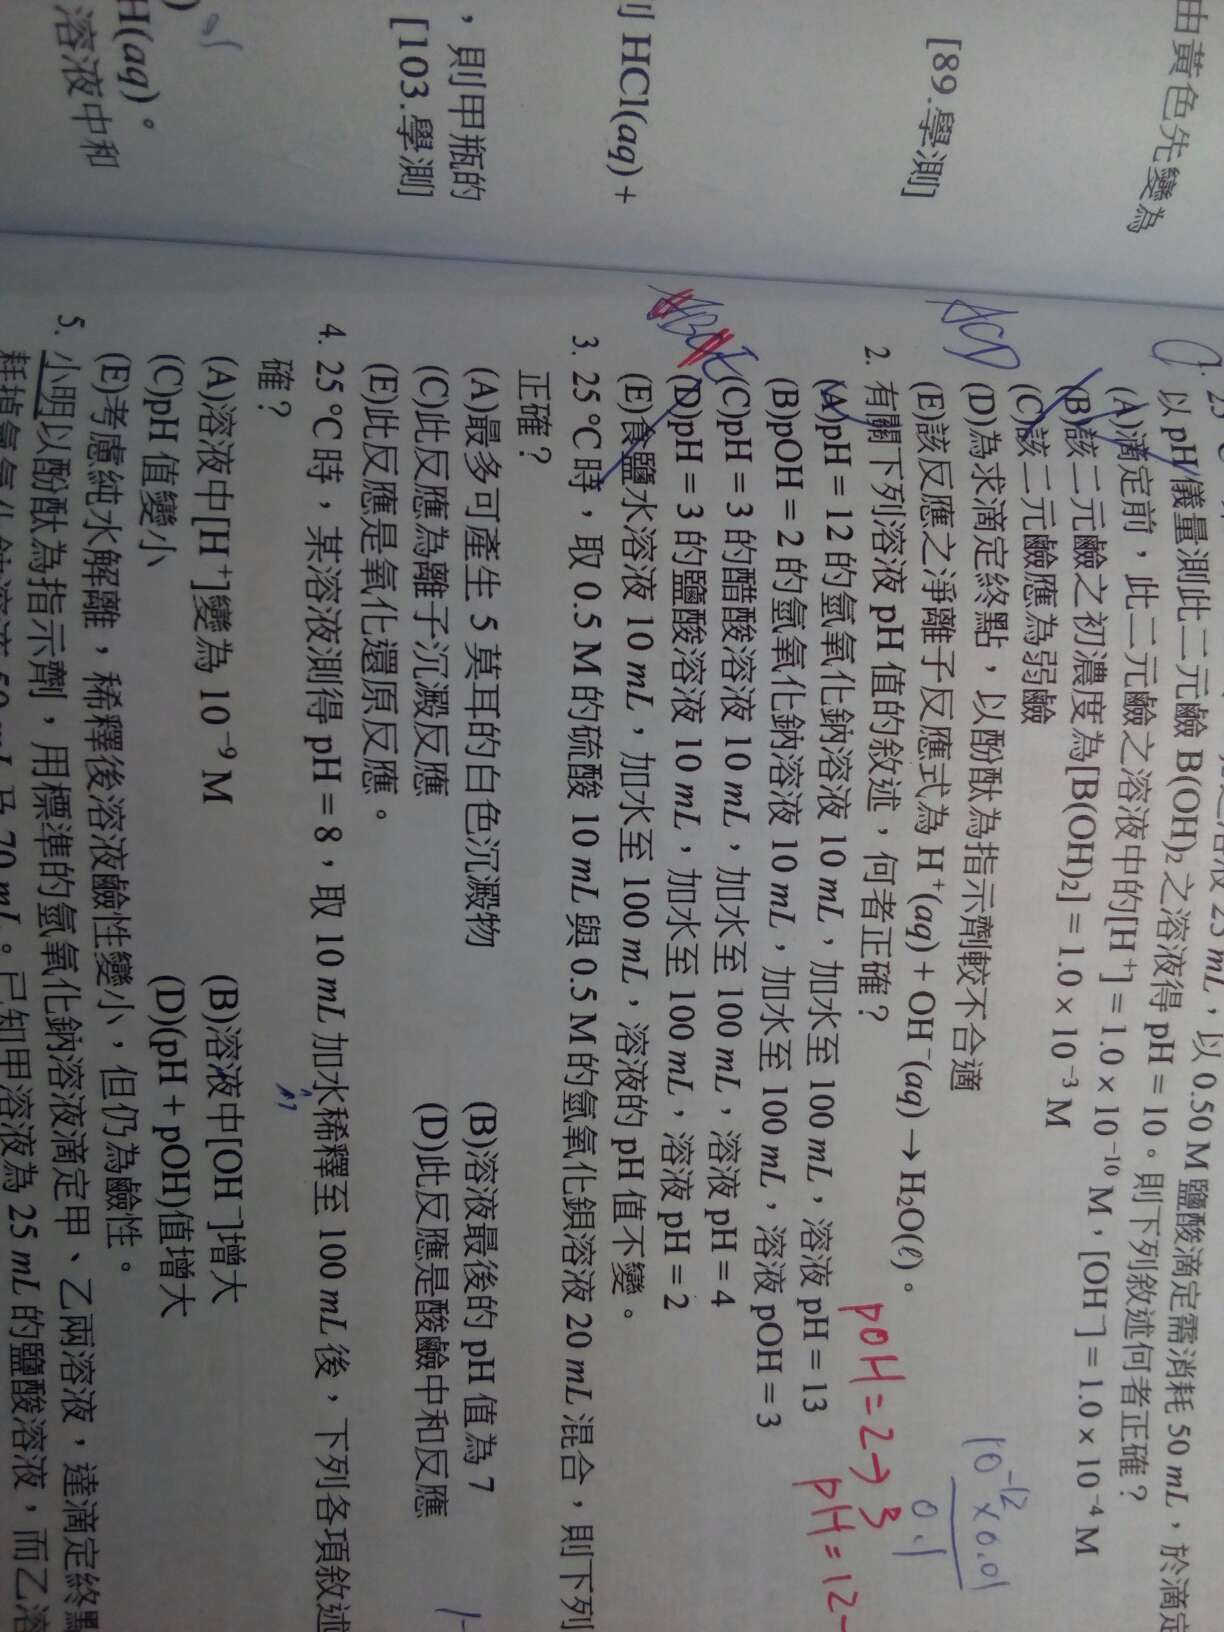 由黃色先變為
[89.學測]
刂 HCl(aq) +
，則甲瓶的
[103.學測]
H(aq)。
溶液中和
以 pH 儀量測此二元鹼 B(OH)₂ 之溶液得 pH = 10。則下列敘述何者正確？
(A)滴定前，此二元鹼之溶液中的[H⁺] = 1.0 × 10⁻¹⁰ M，[OH⁻] = 1.0 × 10⁻⁴ M
(B)該二元鹼之初濃度為[B(OH)₂] = 1.0 × 10⁻³ M
(C)該二元鹼應為弱鹼
(D)為求滴定終點，以酚酞為指示劑較不合適
(E)該反應之淨離子反應式為 H⁺(aq) + OH⁻(aq) → H₂O(ℓ)。
ACD
2. 有關下列溶液 pH 值的敘述，何者正確？
(A)pH = 12 的氫氧化鈉溶液 10 mL，加水至 100 mL，溶液 pH = 13
(B)pOH = 2 的氫氧化鈉溶液 10 mL，加水至 100 mL，溶液 pOH = 3
(C)pH = 3 的醋酸溶液 10 mL，加水至 100 mL，溶液 pH = 4
(D)pH = 3 的鹽酸溶液 10 mL，加水至 100 mL，溶液 pH = 2
(E)食鹽水溶液 10 mL，加水至 100 mL，溶液的 pH 值不變。
10⁻¹² × 0.01
0.1
pOH = 2 → 3
pH = 12 -
3. 25 °C 時，取 0.5 M 的硫酸 10 mL 與 0.5 M 的氫氧化鋇溶液 20 mL 混合，則下列
正確？
(A)最多可產生 5 莫耳的白色沉澱物 (B)溶液最後的 pH 值為 7
(C)此反應為離子沉澱反應 (D)此反應是酸鹼中和反應
(E)此反應是氧化還原反應。
4. 25 °C 時，某溶液測得 pH = 8，取 10 mL 加水稀釋至 100 mL 後，下列各項敘述
確？
(A)溶液中[H⁺]變為 10⁻⁹ M (B)溶液中[OH⁻]增大
(C)pH 值變小 (D)(pH + pOH)值增大
(E)考慮純水解離，稀釋後溶液鹼性變小，但仍為鹼性。
5. 小明以酚酞為指示劑，用標準的氫氧化鈉溶液滴定甲、乙兩溶液，達滴定終點
50 mL 及 70 mL。已知甲溶液為 25 mL 的鹽酸溶液，而乙溶